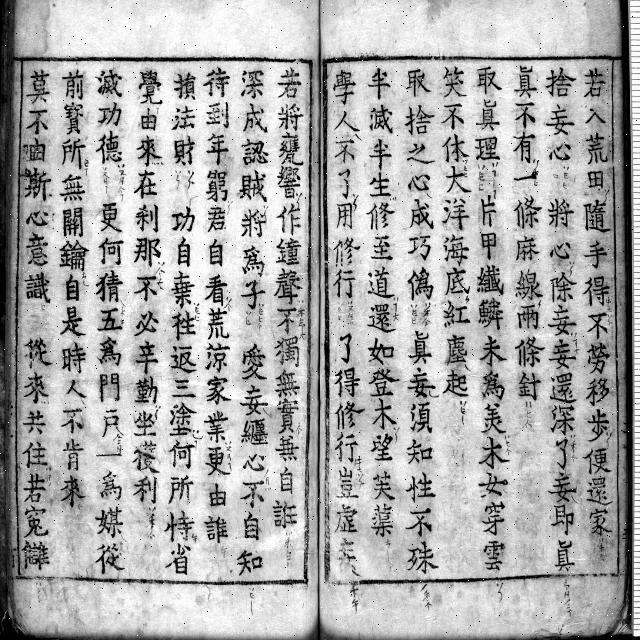 若入荒田隨手得不勞移步便還家
捨妄心 將心除妄妄還深了妄即眞
眞不有一條麻線兩條針
取眞理 片甲纖鱗未爲美木女穿雲
笑不休大洋海底紅塵起
取捨之心成巧僞 眞妄須知性不殊
半減半生修至道還如登木望芙蕖
學人不了用修行 了得修行豈虛
若將甕響作鐘聲不獨無實兼自誑
深成認賊將爲子 愛妄纒心不自知
待到年窮君自看荒涼家業更由誰
損法財 功自棄往返三塗何所恃省
覺由來在刹那不必辛勤坐獲利
滅功德 更何猜五爲門戸一爲媒從
前寳所無關鑰自是時人不肯來
莫不由斯心意識 從來共住若寃讎